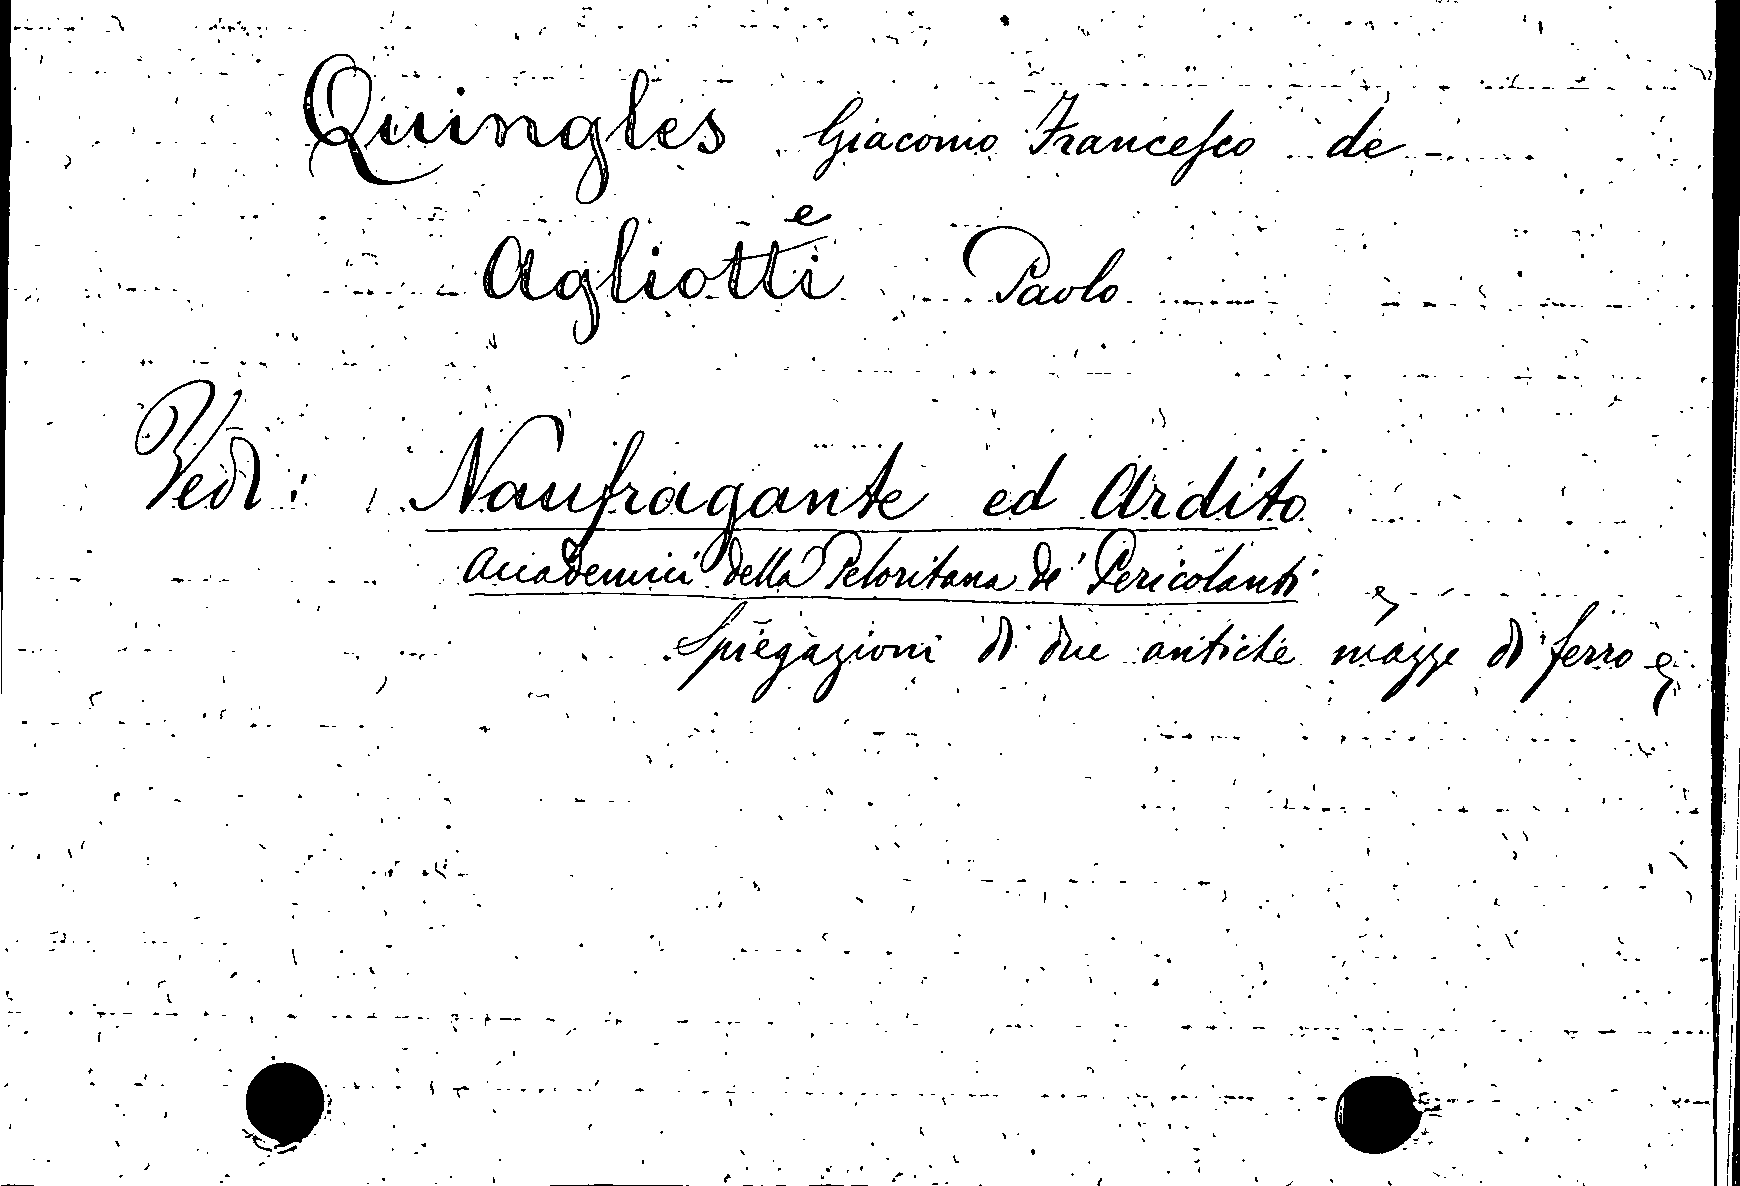 Quingles Giacomo Francesco de
e
Agliotti Paolo
Vedi: Naufragante ed Ardito
Accademici della Peloritana de' Pericolanti
Spiegazioni di due antiche mazze di ferro